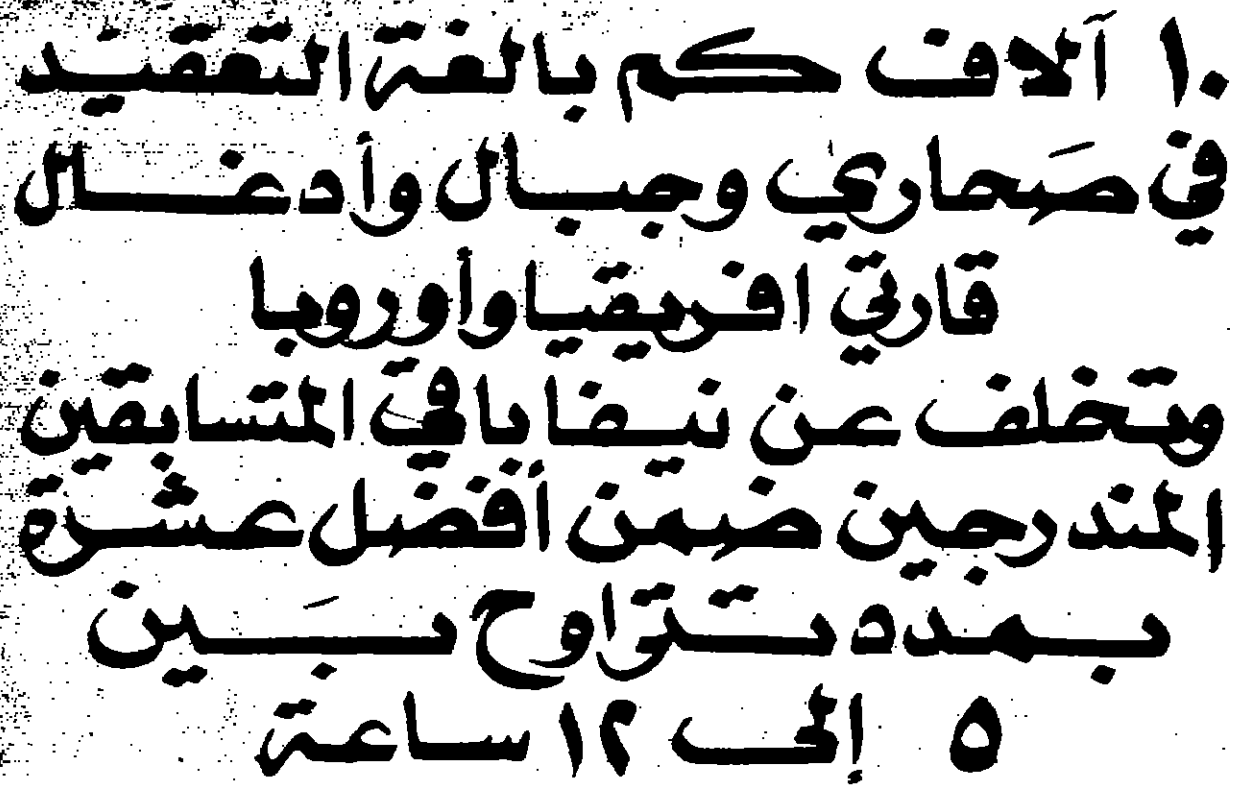 ١٠ آلاف كم بالغة التعقيد
في صَحاري وجبال وأدغال
قارتي افريقيا وأوروبا
وتخلف عن نيفا باقي المتسابقين
المندرجين ضمن أفضل عشرة
بمدد تتراوح بَين
٥ إلى ١٢ ساعة